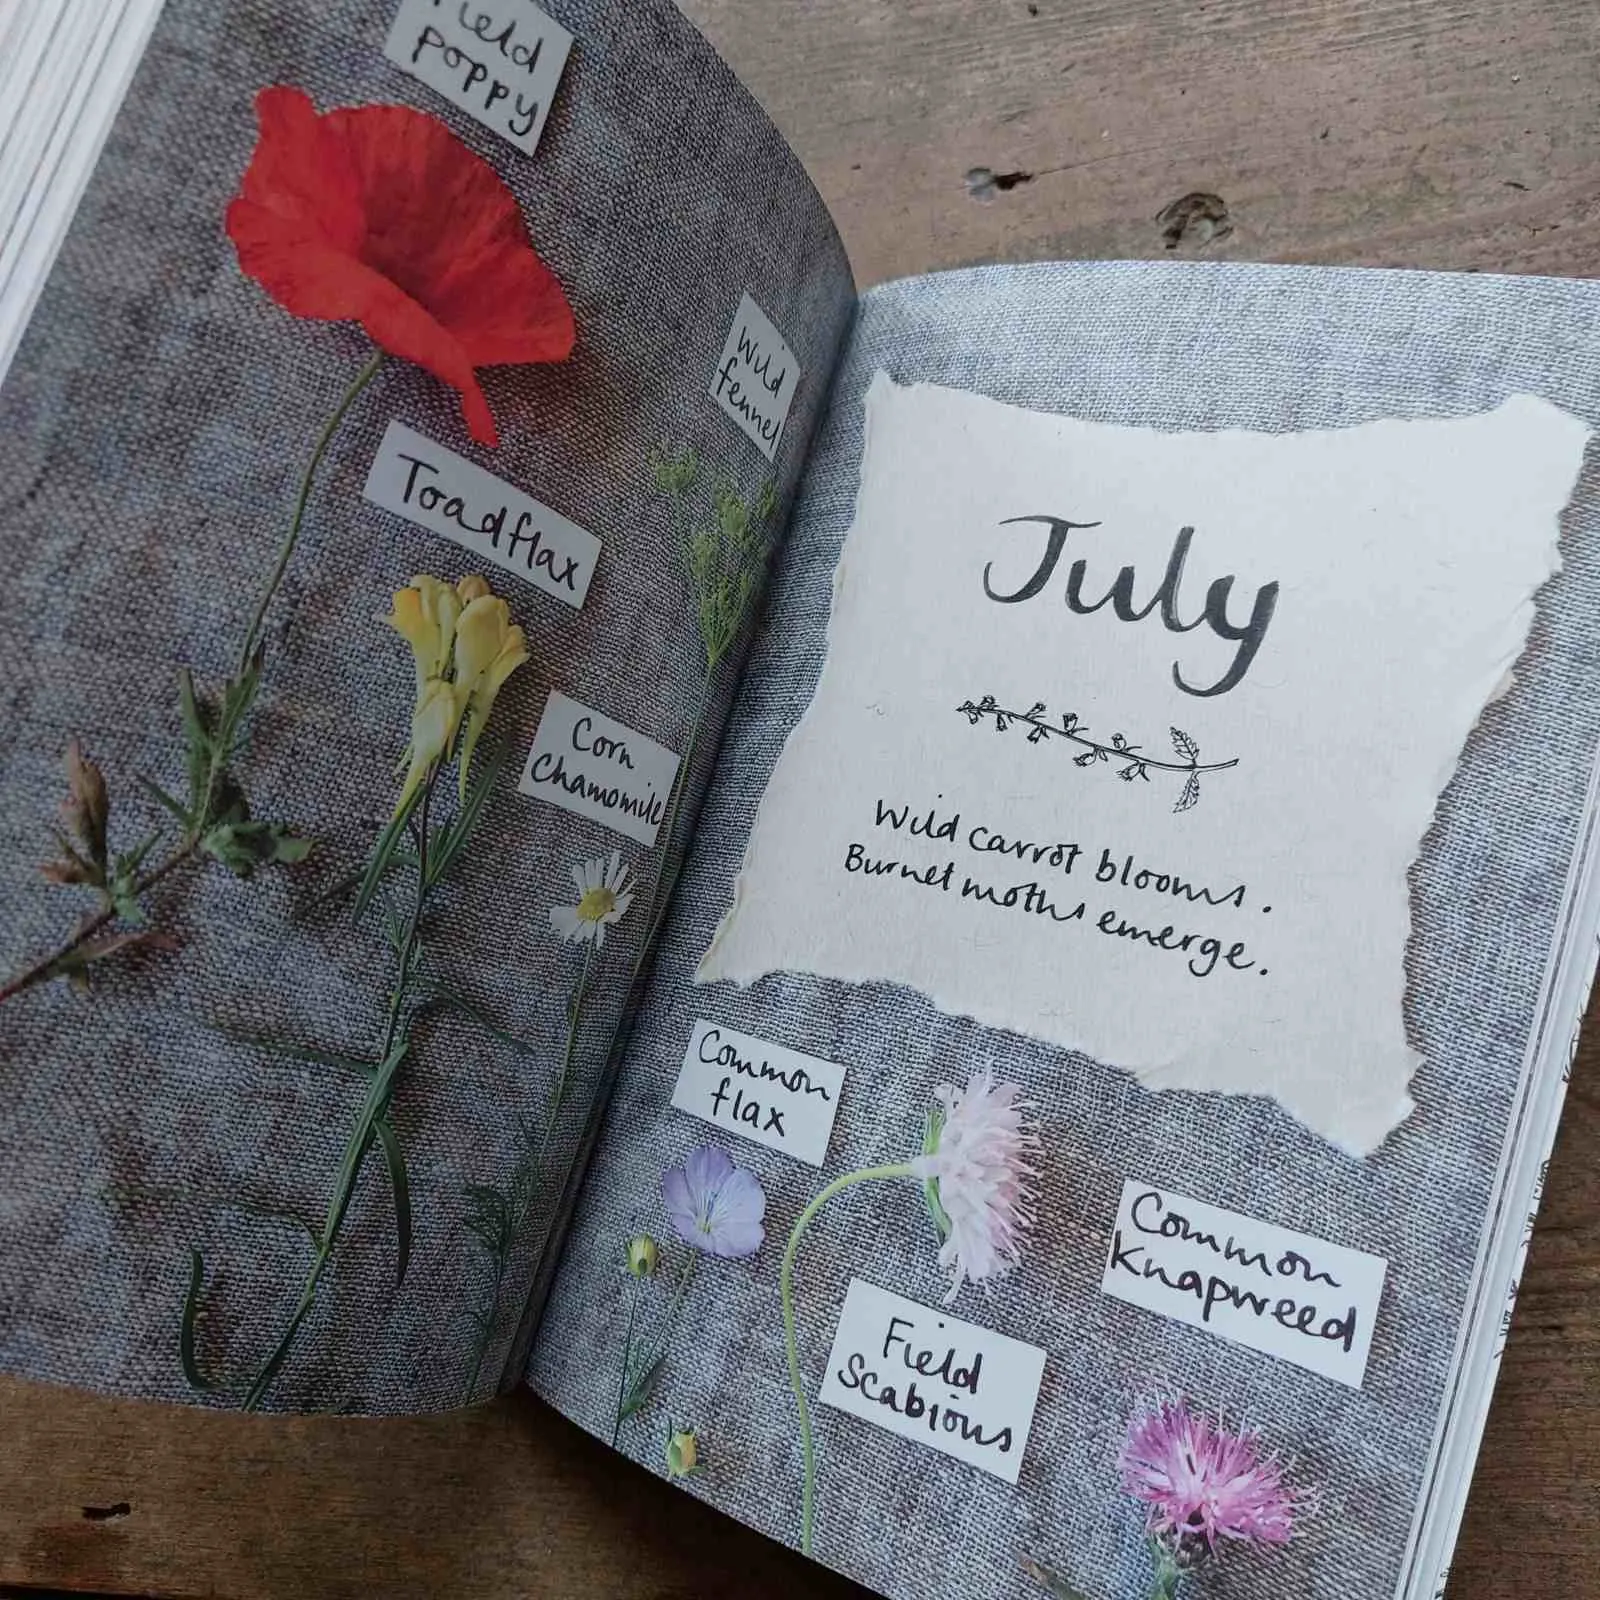 Field
poppy
Wild
fennel
Toadflax
Corn
Chamomile
July
Wild carrot blooms.
Burnet moths emerge.
Common
flax
Field
Scabious
Common
Knapweed